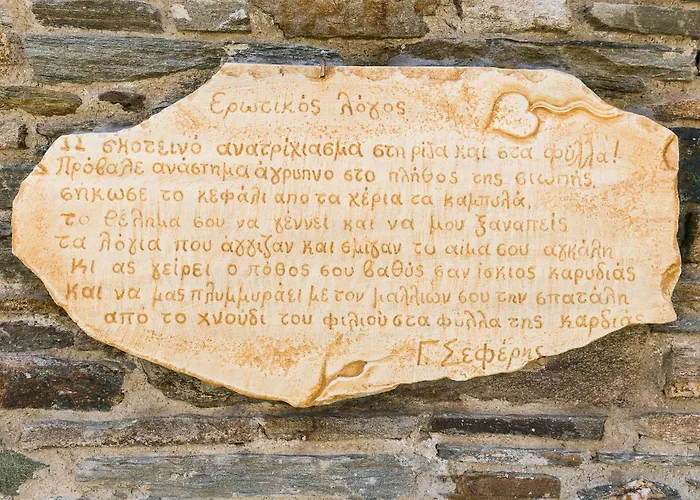 Ερωτικός λόγος
Ω σκοτεινό ανατρίχιασμα στη ρίζα και στα φύλλα!
Πρόβαλε ανάστημα άγρυπνο στο πλήθος της σιωπής
σήκωσε το κεφάλι από τα χέρια τα καμπυλά,
το θέλημα σου να γέννει και να μου ξαναπείς
τα λόγια που άγγιζαν και σμίγαν το αίμα σου αγκάλη
κι ας γείρει ο πόθος σου βαθύς σαν ίσκιος καρυδιάς
και να μας πλυμμυράει με τον μαλλιών σου την σπατάλη
από το χνούδι του φιλιού στα φύλλα της καρδιάς
Γ. Σεφέρης